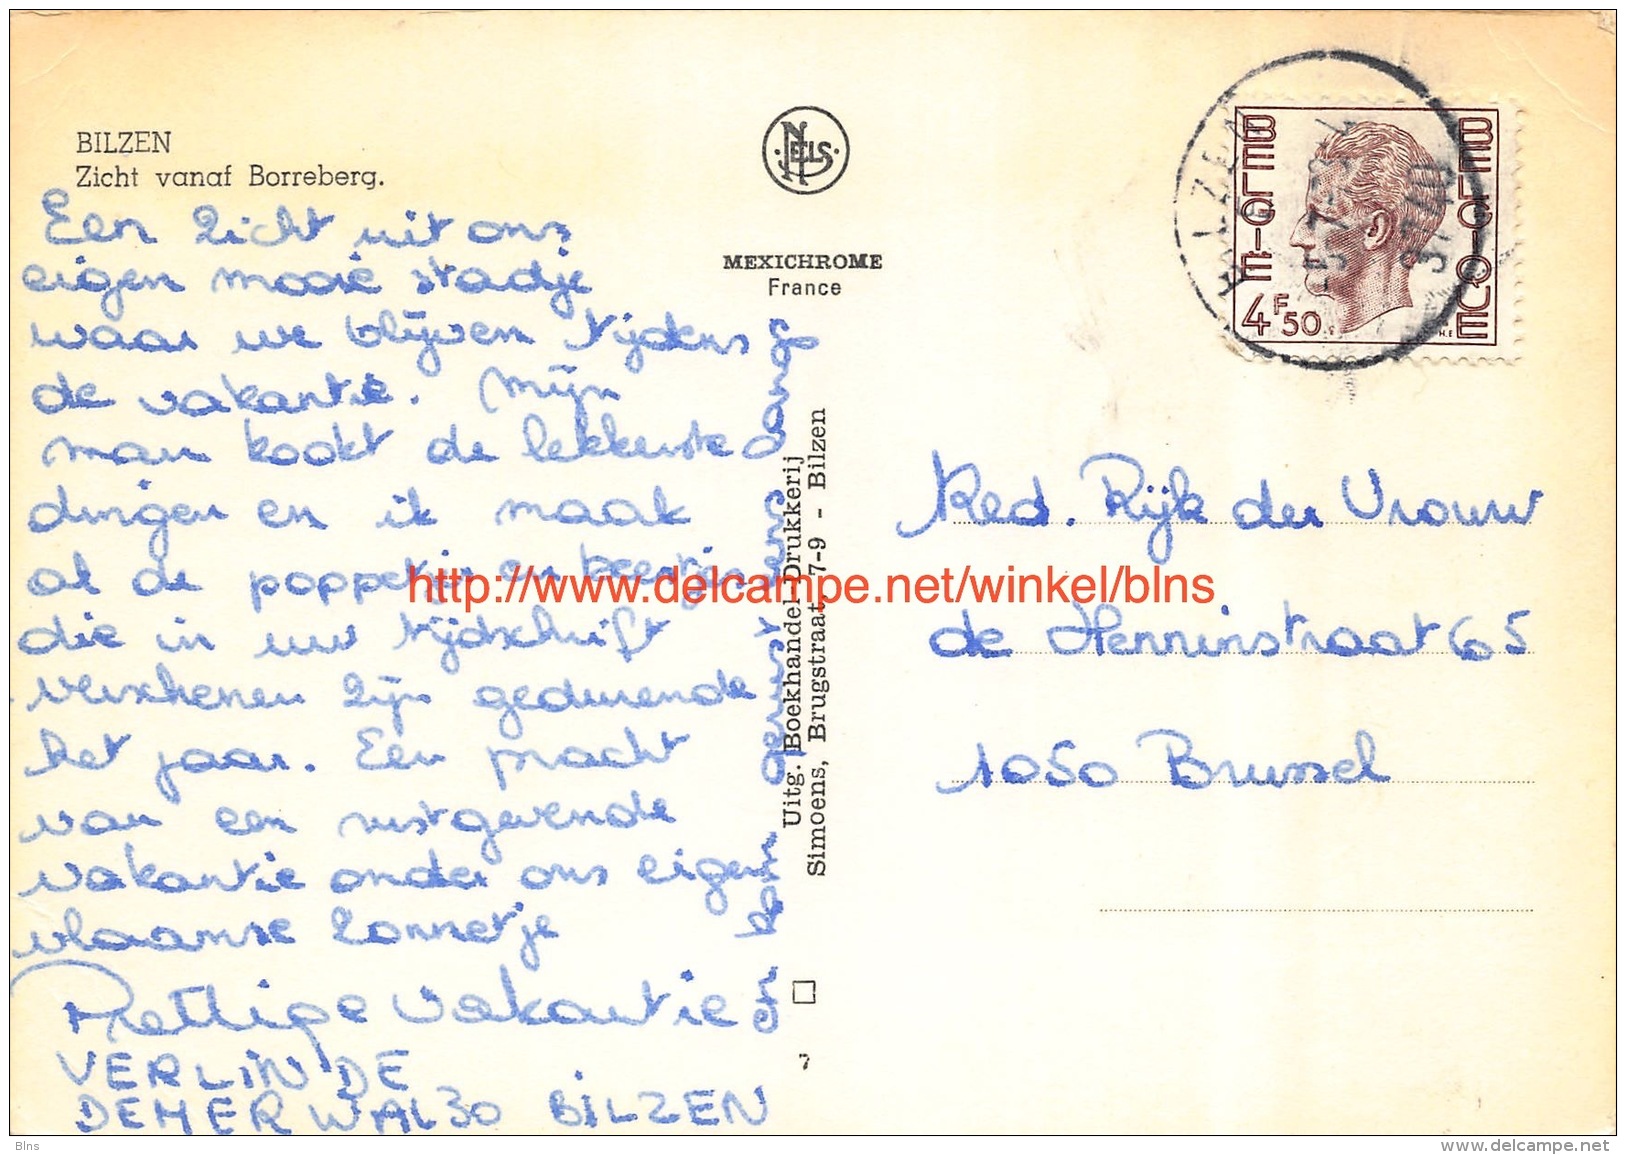 BILZEN
Zicht vanaf Borreberg.
NELS
MEXICHROME
France
Een zicht uit ons
eigen mooie stadje
waar we blijven tijdens
de vakantie. Mijn
man kookt de lekkerste
dingen en ik maak
al de poppetjes en beestjes
die in uw tijdschrift
verschenen zijn gedurende
het jaar. Een pracht
van een rustgevende
vakantie onder ons eigen
vlaamse zonnetje
Prettige vakantie
en
VERLINDE
DEMERWAL 30 BILZEN
Uitg. Boekhandel-Drukkerij
Simoens, Brugstraat, 7-9 - Bilzen
7
BILZEN
BELGIE
BELGIQUE
4F50
3740
Red. Rijk der Vrouw
de Henninstraat 65
1050 Brussel
http://www.delcampe.net/winkel/blns
Blns
www.delcampe.net